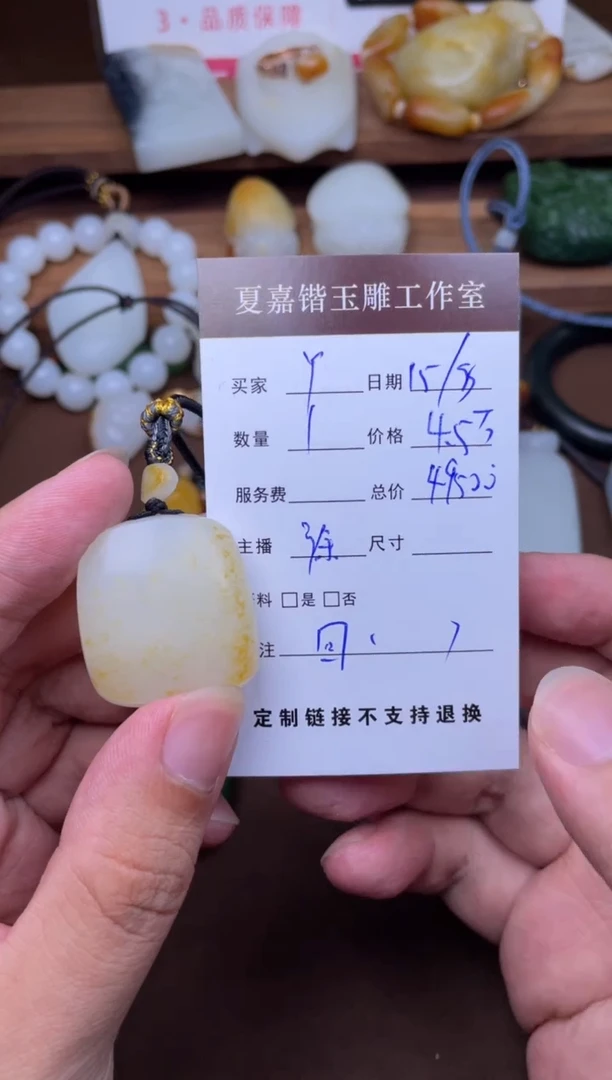 3·品质保障
夏嘉锴玉雕工作室
买家 Y 日期 15/
数量 1 价格 4.5万
服务费 总价
主播 徐 尺寸
料 □是 □否
注 回
定制链接不支持退换